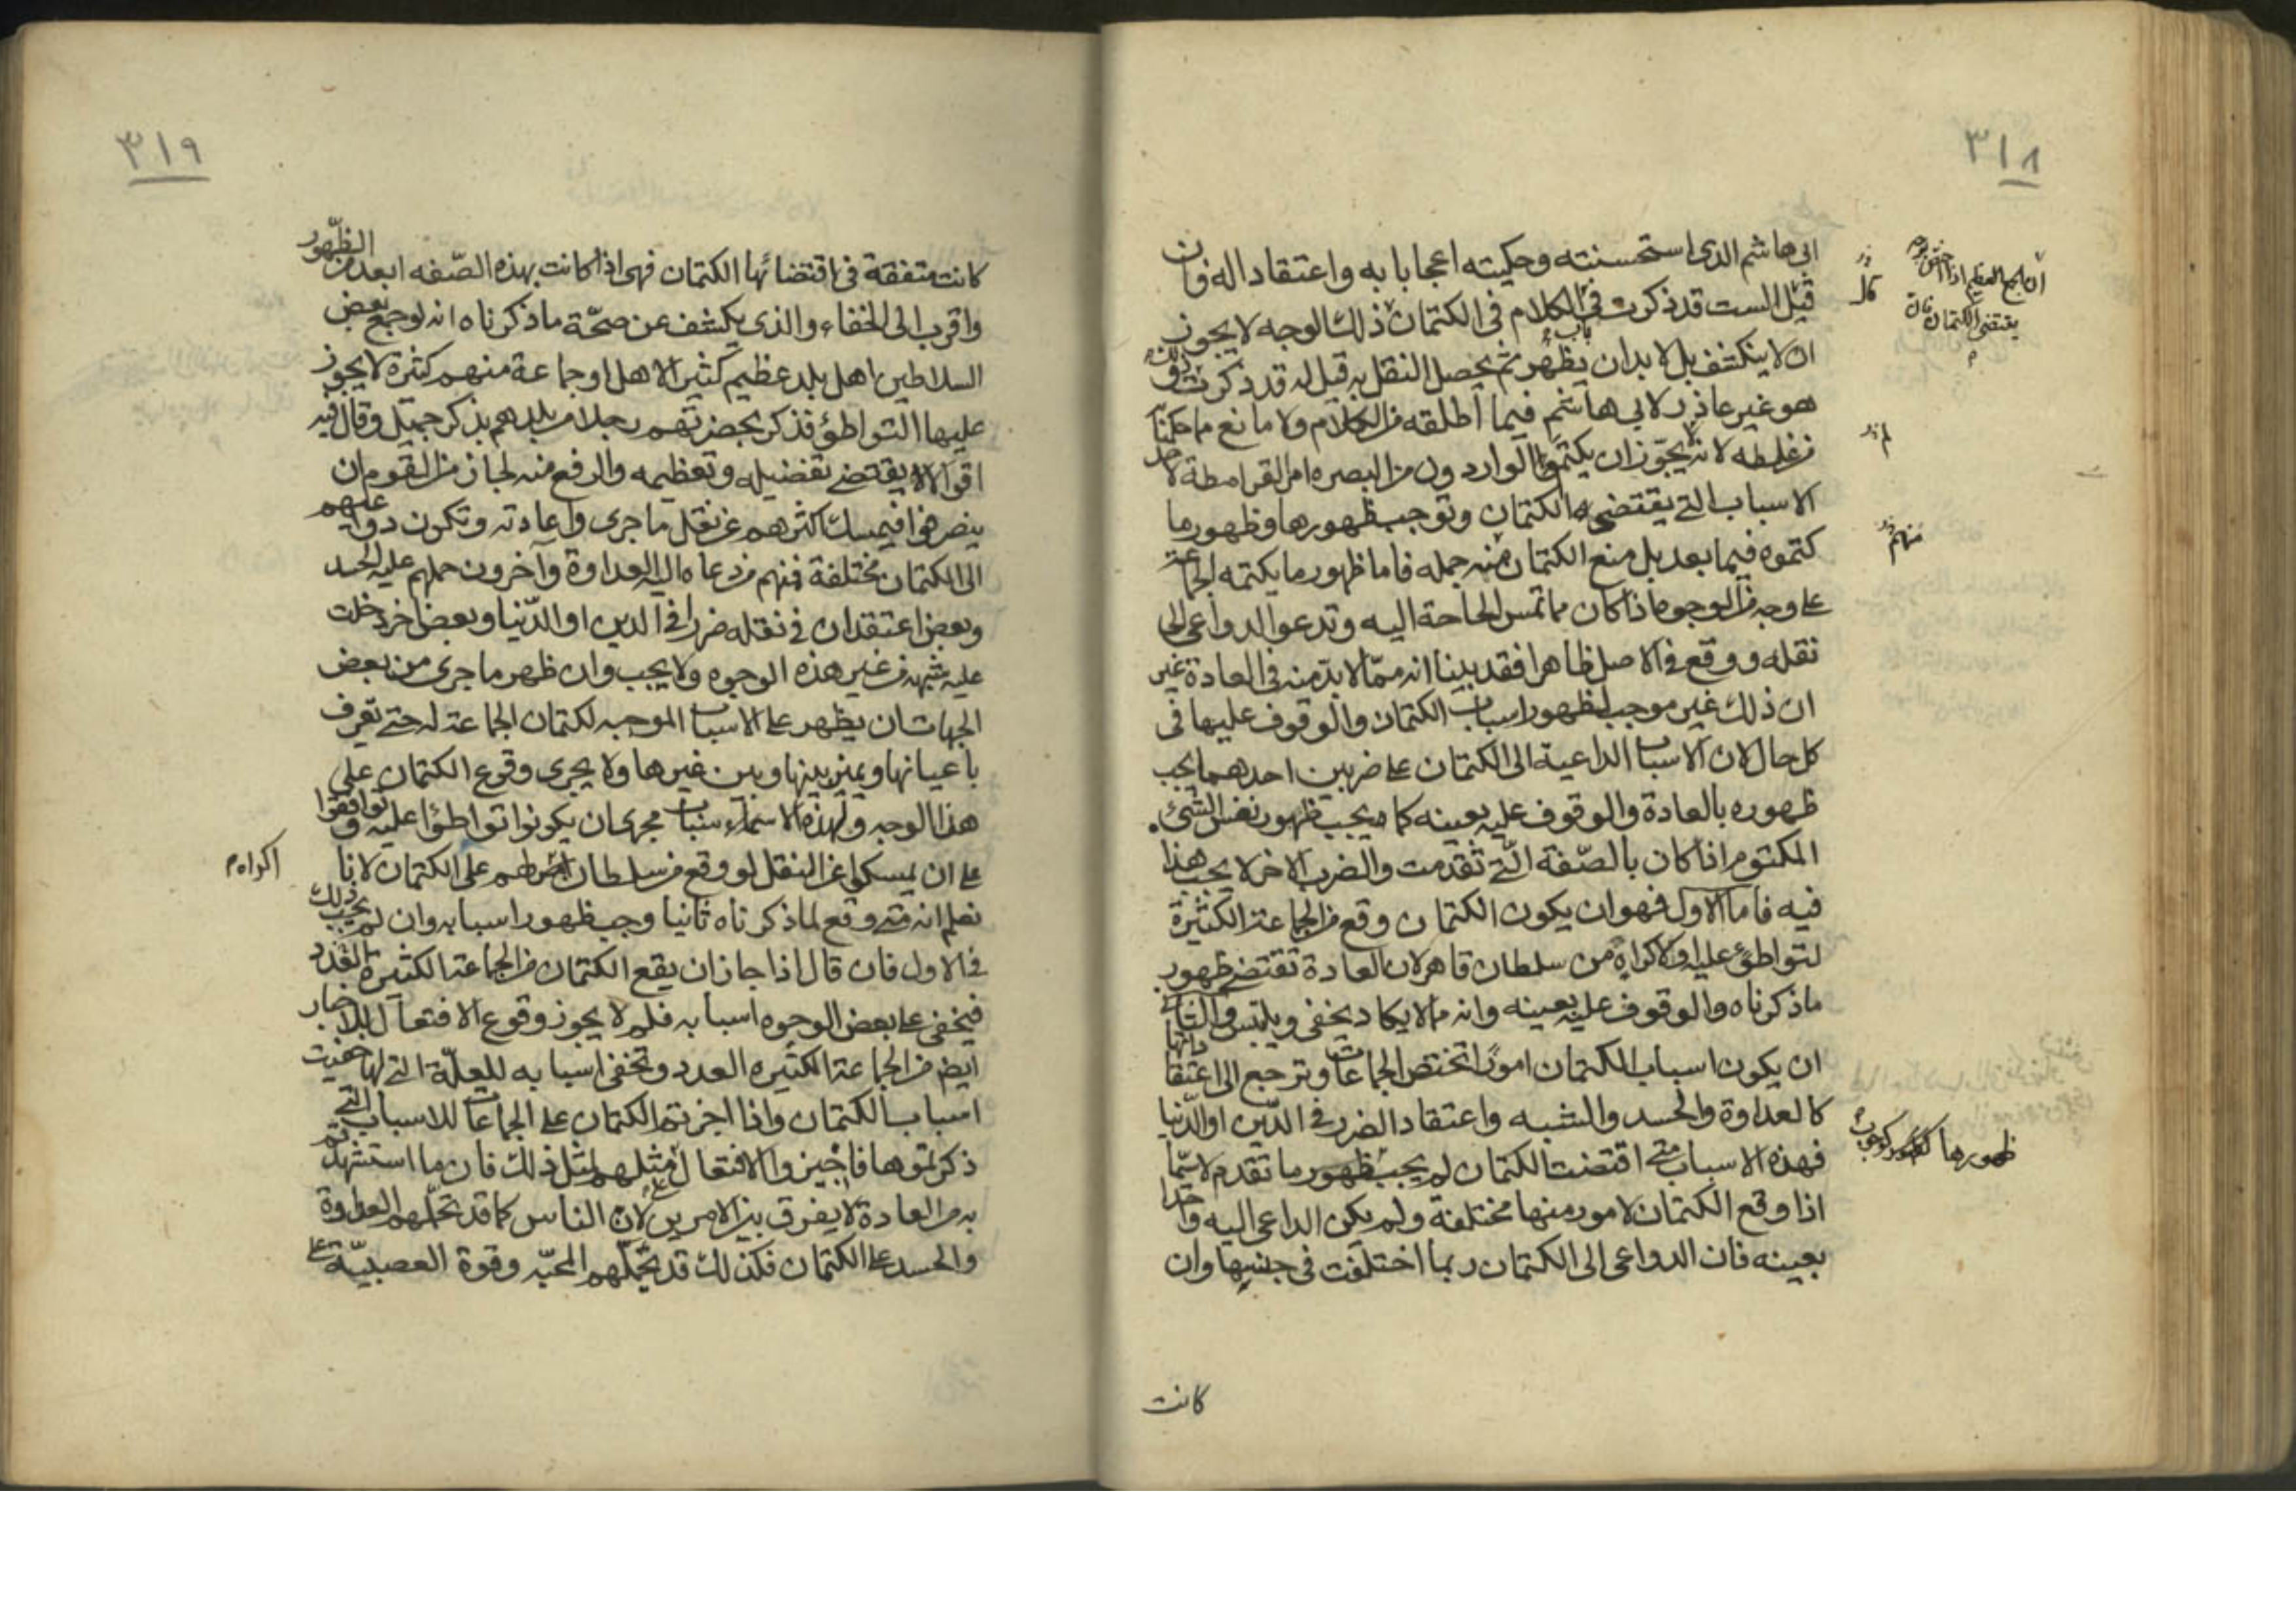 ٣١٨
ابى هاشم الذى استحسنته وحكيته اعجابا به واعتقادا له فان
قيل الست قد ذكرت فى الكلام فى الكتمان ذلك الوجه لا يجوز
ان لا ينكشف بل لا بد ان يظهر ثم يحصل النقل به قيل له قد ذكرت
هو غير عاذر لابى هاشم فيما اطلقه من الكلام ولا مانع ما حكمنا
من غلطه لانه يجوز ان يكتموا الواردون من البصره امر القرامطة لاحد
الاسباب التى يقتضى الكتمان وتوجب ظهورها وظهور ما
كتموه فيما بعد بل منع الكتمان منه جمله فاما ظهور ما يكتمه الجماعة
على وجه من الوجوه اذا كان مما تمس الحاجة اليه وتدعو الدواعى الى
نقله ووقع فى الاصل ظاهرا فقد بينا انه ممّا لا بدّ منه فى العادة غير
ان ذلك غير موجب لظهور اسباب الكتمان والوقوف عليها فى
كل حال لان الاسباب الداعية الى الكتمان على ضربين احدهما يجب
ظهوره بالعادة والوقوف عليه بعينه كما يجب ظهور نفس الشئ
المكتوم اذا كان بالصّفة الّتى تقدمت والضرب الاخر لا يجب هذا
فيه فاما الاول فهو ان يكون الكتمان وقع من الجماعة الكثيرة
لتواطئ عليه او لاكراه من سلطان قاهر لان العادة تقتضى ظهور
ما ذكرناه والوقوف عليه بعينه وانه مما لا يكاد يخفى ويلتبس والثانى
ان يكون اسباب الكتمان امورًا تختص الجماعات وترجع الى اعتقاداتها
كالعداوة والحسد والشبه واعتقاد الضرر فى الدّين او الدّنيا
فهذه الاسباب متى اقتضت الكتمان لم يجب ظهور ما تقدم لا سيّما
اذا وقع الكتمان لامور منها مختلفة ولم يكن الداعى اليه واحدا
بعينه فان الدواعى الى الكتمان ربما اختلفت فى جنسها وان
كانت
ان الجمع العظيم اذا
يقتضى الكتمان فان
لم
منهم
ظهورها
٣١٩
كانت متفقة فى اقتضائها الكتمان فهى اذا كانت بهذه الصّفه ابعد من الظّهور
واقرب الى الخفاء والذى يكشف عن صحّة ما ذكرناه انه لو جمع بعض
السلاطين اهل بلد عظيم كثير الاهل او جماعة منهم كثرة لا يجوز
عليها التواطؤ فذكر بحضرتهم رجلا من بلدهم بذكر جميل وقال فيه
اقوالا يقتضى تفضيله وتعظيمه والرفع منه لجاز من القوم ان
ينصرفوا فيمسك اكثرهم عن نقل ما جرى واعادته وتكون دواعيهم
الى الكتمان مختلفة فمنهم من دعاه اليه العداوة وآخرون حملهم عليه الحسد
وبعض اعتقد ان فى نقله ضررا فى الدين او الدّنيا وبعض اخر دخلت
عليه شبهه من غير هذه الوجوه ولا يجب وان ظهر ما جرى من بعض
الجهات ان يظهر على الاسباب الموجبه لكتمان الجماعة له حتى تعرف
باعيانها ويميز بينها وبين غيرها ولا يجرى وقوع الكتمان على
هذا الوجه ولهذه الاسباب مجرى ان يكونوا تواطؤا عليه وتوافقوا
على ان يمسكوا عن النقل لو وقع من سلطان اكراههم على الكتمان لانا
نعلم انه متى وقع لما ذكرناه ثانيا وجب ظهور اسبابه وان لم يجب ذلك
فى الاول فان قال اذا جاز ان يقع الكتمان من الجماعة الكثيرة العدد
فيخفى على بعض الوجوه اسبابه فلم لا يجوز وقوع الافتعال للاخبار
ايضا من الجماعة الكثيره العدد وتخفى اسبابه للعلّة التى لها خفيت
اسباب الكتمان واذا اجزتم الكتمان على الجماعات للاسباب التى
ذكرتموها فاجيزوا الافتعال من مثلهم لمثل ذلك فان ما استشهدتم
به من العادة لا يفرق بين الامرين لانّ الناس كما قد تحملهم العداوة
والحسد على الكتمان فكذلك قد تحملهم المحبّه وقوة العصبيّة على
اكراه م